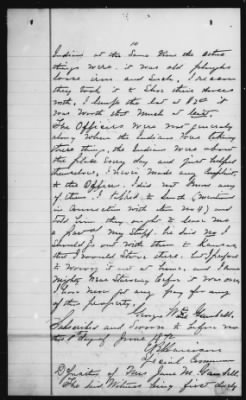 10
Indians at the same time the other
things were. it was old ploughs
loose iron and such. I reason
they took it to shoe their horses
with. I lump the lot at $20 it
was worth that much at least.
The Officers were not generally
along when the Indians was taking
these things, the Indians were about
the place every day and just helped
themselves, I never made any complaint
to the Officers. I did not know any
of them. I talked to
in connection with item No 9) and
told him they ought to leave me
a part of my stuff. he said no I
should go out with them to Kansas
that I would starve here. but I prefered
to worry it out at home, and I came
mighty near starving before it was over
I have never got any pay for any
of this property.
George W. Gambell.
Subscribed and sworn to before me
this 8 day of June
Special Commr
Deposition of Mrs Jane M. Gambell
The said Witness being first duly